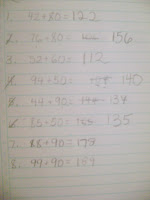 1. 42+80=122
2. 76+80= 156
3. 52+60= 112
4. 94+50= 140
5. 44+90= 134
6. 85+50= 135
7. 88+90=
8. 99+90=